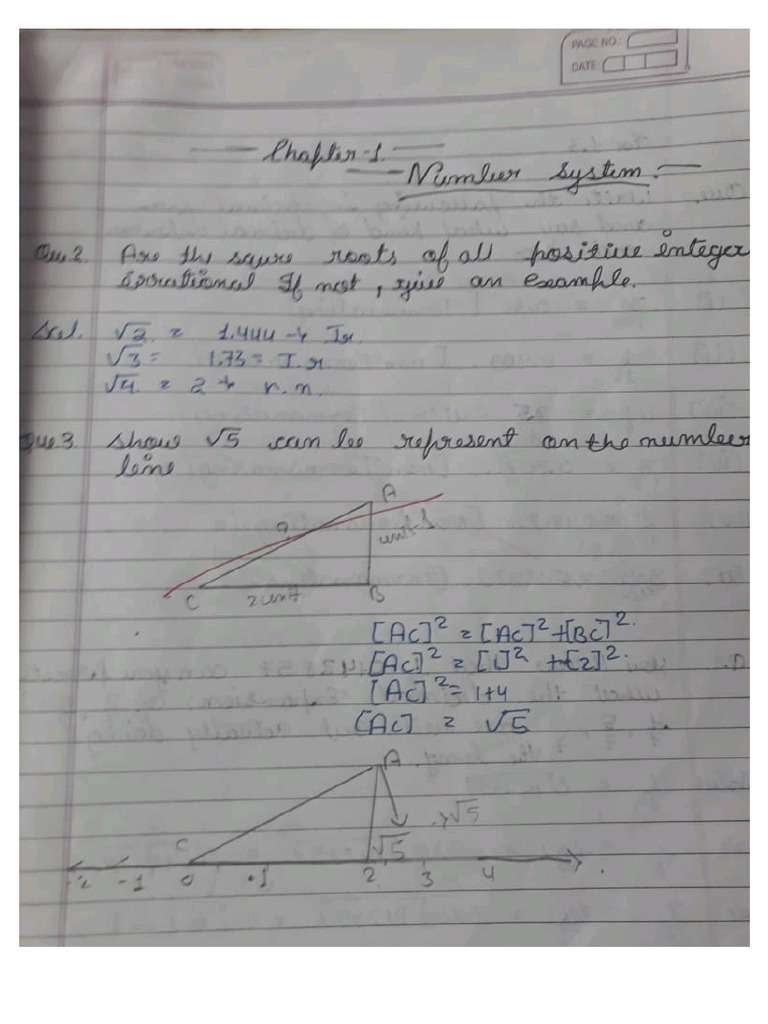 PAGE NO.:
DATE:
Chapter-1.
Number System.
Que.2. Are thy squre roots of all positive integer
irrational If not, give an example.
Sol. √2 = 1.444 → Ir.
√3 = 1.73 = I.r.
√4 = 2 → r.n.
Que.3 Show √5 can be represent on the number
line
A
unit-1
C 2 unit B
[AC]² = [AC]² + [BC]².
[AC]² = [1]² + [2]².
[AC]² = 1+4
[AC] = √5
A
√5
C √5
-2 -1 0 .1 2 3 4